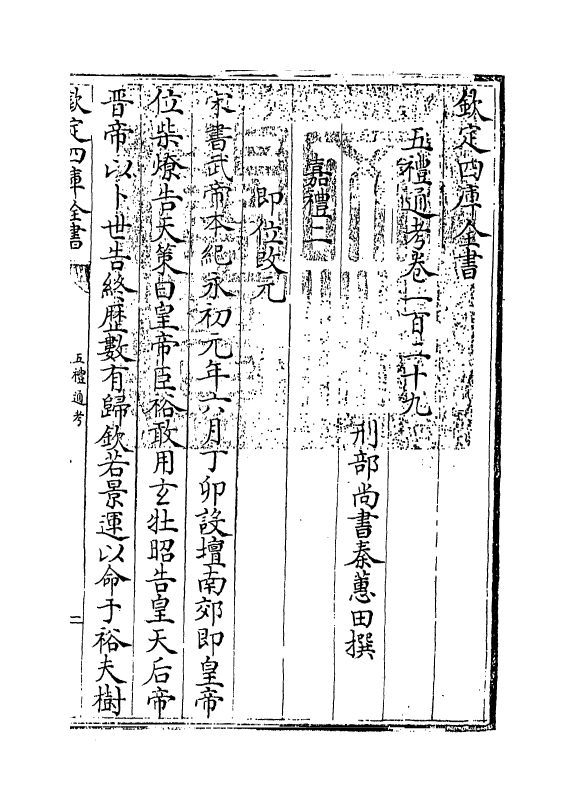 欽定四庫全書
五禮通考卷一百二十九
刑部尚書秦蕙田撰
嘉禮二
即位改元
宋書武帝本紀永初元年六月丁卯設壇南郊即皇帝
位柴燎告天策曰皇帝臣裕敢用玄牡昭告皇天后帝
晉帝以卜世告終歷數有歸欽若景運以命于裕夫樹
欽定四庫全書
五禮通考